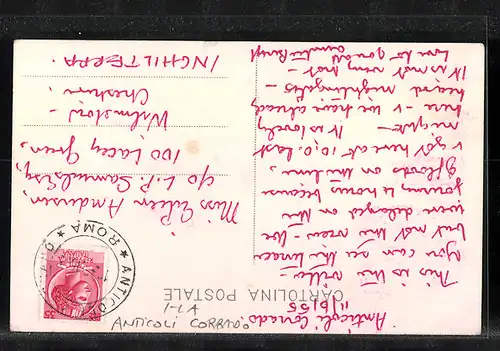 Anticoli Corrado
11/6/55
This is the villa
you can see the terrace
but not the view - We
were delayed on the
journey 12 hours because
of floods on the line,
& got here at 10.0. last
night -
It is lovely
here - & we have already
heard nightingales -
It is not very hot -
Love to you all
CARTOLINA POSTALE
Miss Eileen Anderson,
c/o L.P. Samuels Esq,
100 Lacey Green,
Wilmslow -
Cheshire.
INGHILTERRA.
ANTICOLI
ROMA
1-LA
ANTICOLI CORRADO